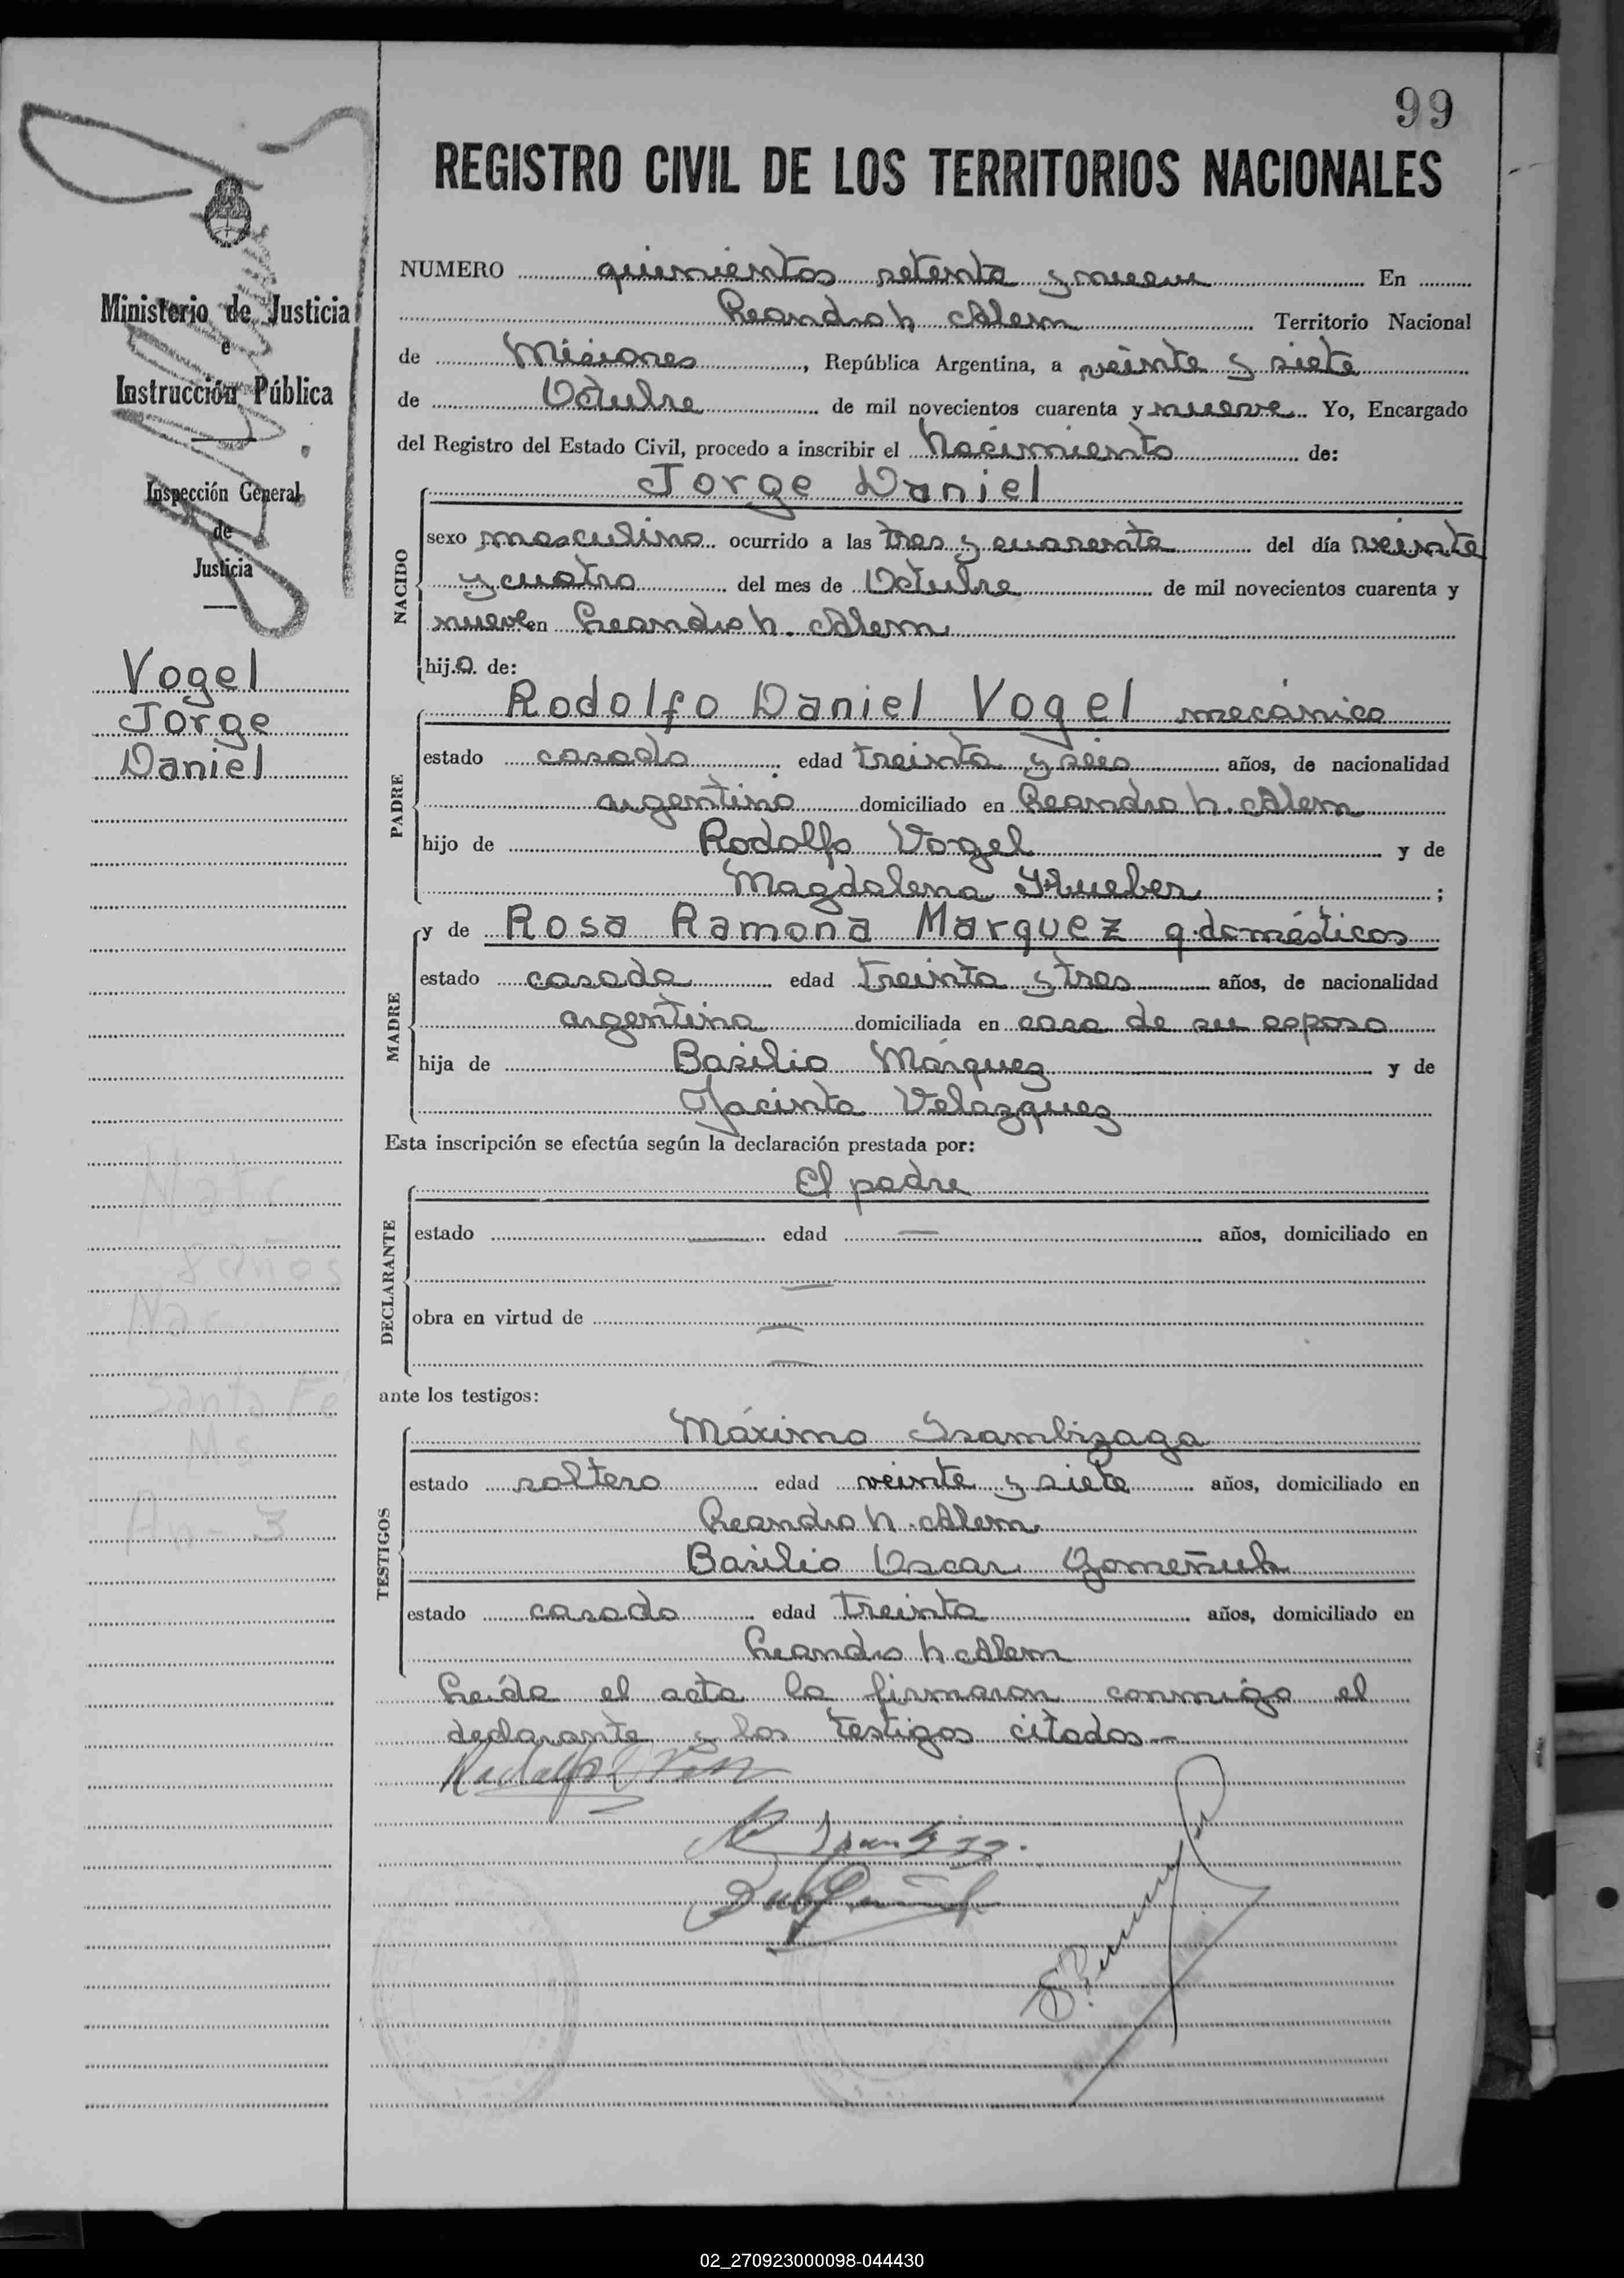 99
REGISTRO CIVIL DE LOS TERRITORIOS NACIONALES
Ministerio de Justicia
e
Instrucción Pública
Inspección General
de
Justicia
Vogel
Jorge
Daniel
Natr
8 años
Nac
Santa Fé
Ms
An - 3
NUMERO quinientos setenta y nueve En
Leandro N Alem Territorio Nacional
de Misiones, República Argentina, a veinte y siete
de Octubre de mil novecientos cuarenta y nueve Yo, Encargado
del Registro del Estado Civil, procedo a inscribir el Nacimiento de:
NACIDO
Jorge Daniel
sexo masculino ocurrido a las tres y cuarenta del día veinte
y cuatro del mes de Octubre de mil novecientos cuarenta y
nueve en Leandro N. Alem
hijo de:
PADRE
Rodolfo Daniel Vogel mecánico
estado casado edad treinta y séis años, de nacionalidad
argentino domiciliado en Leandro N. Alem
hijo de Rodolfo Vogel y de
Magdalena Hueber;
MADRE
y de Rosa Ramona Marquez q. domésticos
estado casada edad treinta y tres años, de nacionalidad
argentina domiciliada en casa de su esposo
hija de Basilio Márquez y de
Jacinta Velazquez
Esta inscripción se efectúa según la declaración prestada por:
DECLARANTE
El padre
estado — edad — años, domiciliado en
—
obra en virtud de —
—
ante los testigos:
TESTIGOS
Máximo Isambizaga
estado soltero edad veinte y siete años, domiciliado en
Leandro N. Alem
Basilio Oscar Gomeñuk
estado casado edad treinta años, domiciliado en
Leandro N. Alem
Leída el acta la firmaron conmigo el
declarante y los testigos citados—
02_270923000098-044430